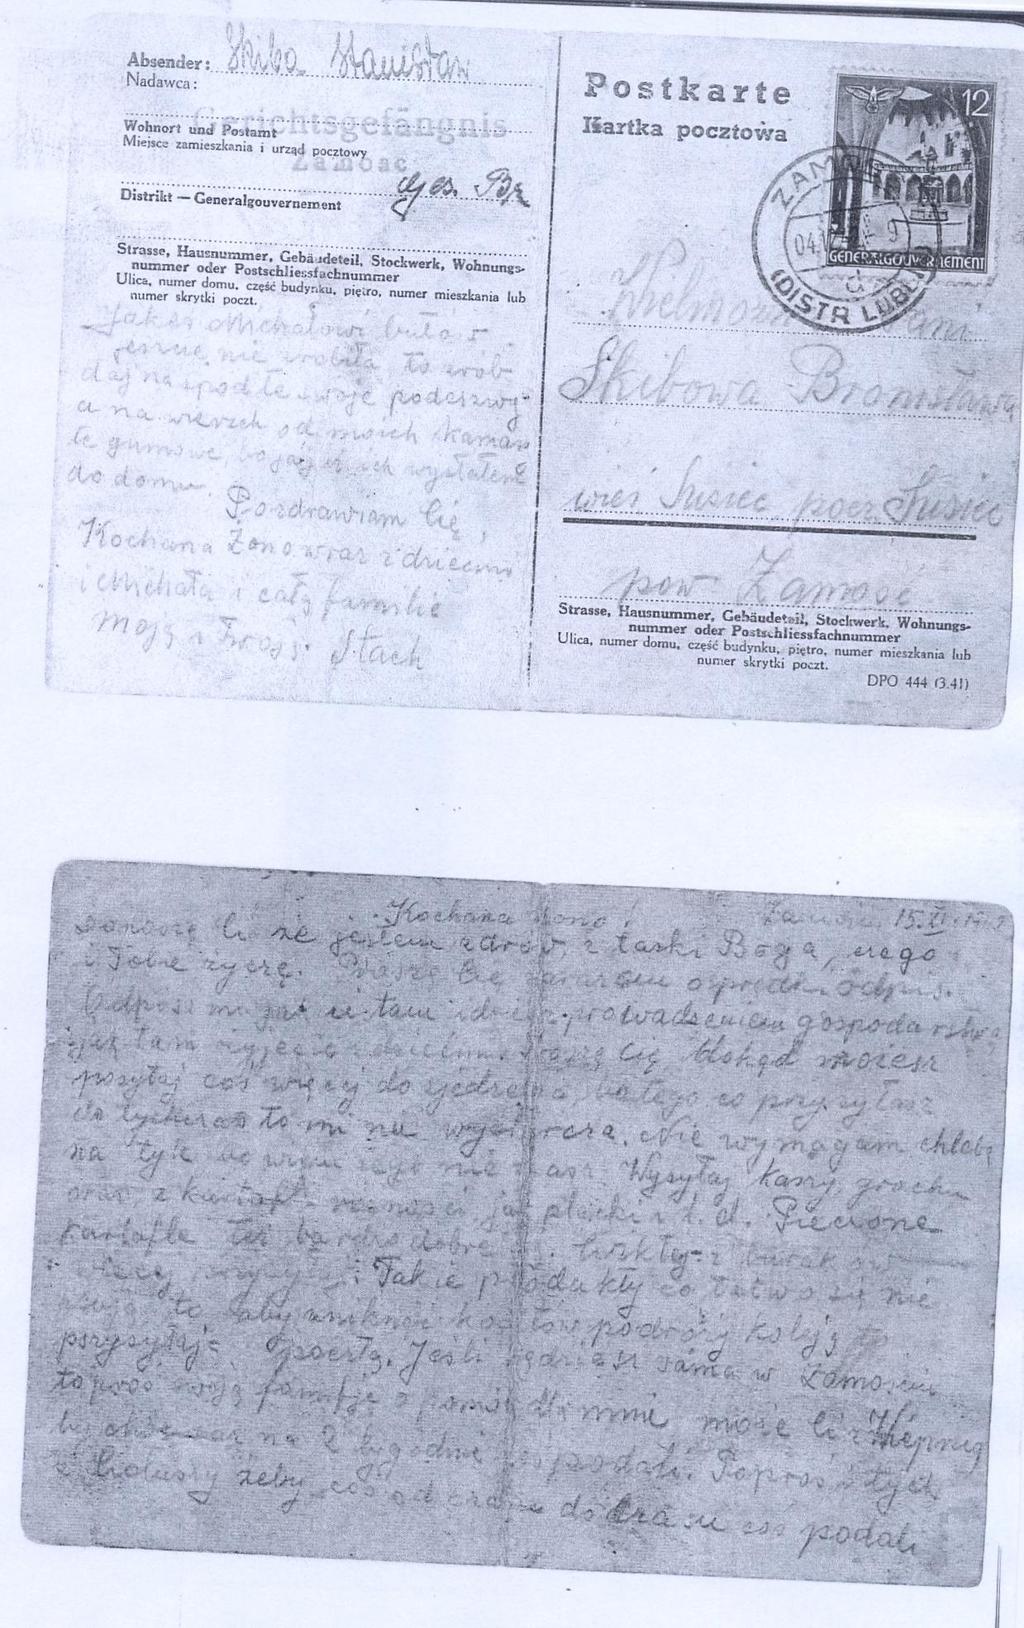 Absender: Skiba Stanisław
Nadawca:
Gerichtsgefängnis
Wohnort und Postamt
Miejsce zamieszkania i urząd pocztowy
Distrikt — Generalgouvernement
Strasse, Hausnummer, Gebäudeteil, Stockwerk, Wohnungs-
nummer oder Postschliessfachnummer
Ulica, numer domu, część budynku, piętro, numer mieszkania lub
numer skrytki poczt.
Michałowi butów
jeszcze nie zrobiła to zrób
daj na spód te swoje podeszwy
a na wierzch od moich kamasz
te gumowe, bo ja ich wysłałem
do domu. Pozdrawiam Cię,
Kochana Żono wraz z dziećmi
i Michała i całą familię
moją i Twoją. Stach
Postkarte
Kartka pocztowa
12
GENERALGOUVERNEMENT
ZAMOŚĆ
(DISTR LUBLIN)
d
Wielmożna Pani
Skibowa Bronisława
wieś Susiec pocz Susiec
pow Zamość
Strasse, Hausnummer, Gebäudeteil, Stockwerk, Wohnungs-
nummer oder Postschliessfachnummer
Ulica, numer domu, część budynku, piętro, numer mieszkania lub
numer skrytki poczt.
DPO 444 (3.41)
Kochana Żono! 15.XI
Donoszę Ci że jestem zdrów z łaski Boga, czego
i Tobie życzę. Proszę Cię o prędki odpis.
Odpisz mi jak Ci tam idzie z prowadzeniem gospodarstwa
jak tam żyjecie z dziećmi. Proszę Cię dokąd możesz
posyłaj coś więcej do zjedzenia, bo tego co przysyłasz
do tychczas to mi nie wystarcza. Nie wymagam chleba
na tyle bo wiem że go nie masz. Wysyłaj kaszy, grochu
oraz z kartofli jak placki i t. d. Pieczone
kartofle też bardzo dobre są.
Takie produkty co łatwo się nie
psują to aby uniknąć kosztów podróży koleją to
przysyłaj pocztą. Jeśli będziesz sama w Zamościu
to proś moją familję o pomoc dla mnie może Ci
by choć raz na 2 tygodnie podali. Poproś i tych
z żeby coś od czasu do czasu coś podali